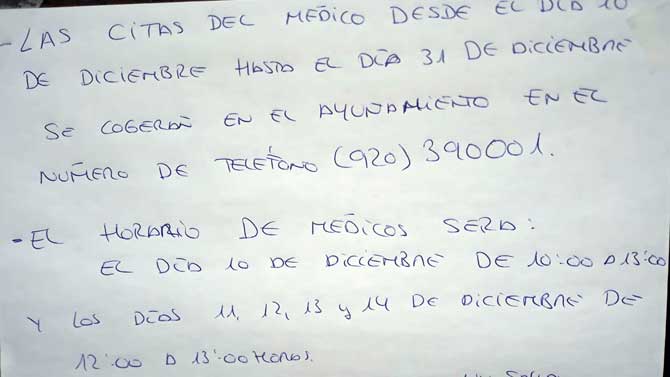 - LAS CITAS DEL MÉDICO DESDE EL DÍA 10
DE DICIEMBRE HASTA EL DÍA 31 DE DICIEMBRE
SE COGERÁN EN EL AYUNDAMIENTO EN EL
NÚMERO DE TELÉFONO (920) 390001.
- EL HORARIO DE MÉDICOS SERÁ:
EL DÍA 10 DE DICIEMBRE DE 10:00 A 13:00
Y LOS DÍAS 11, 12, 13 y 14 DE DICIEMBRE DE
12:00 A 13:00 HORAS.